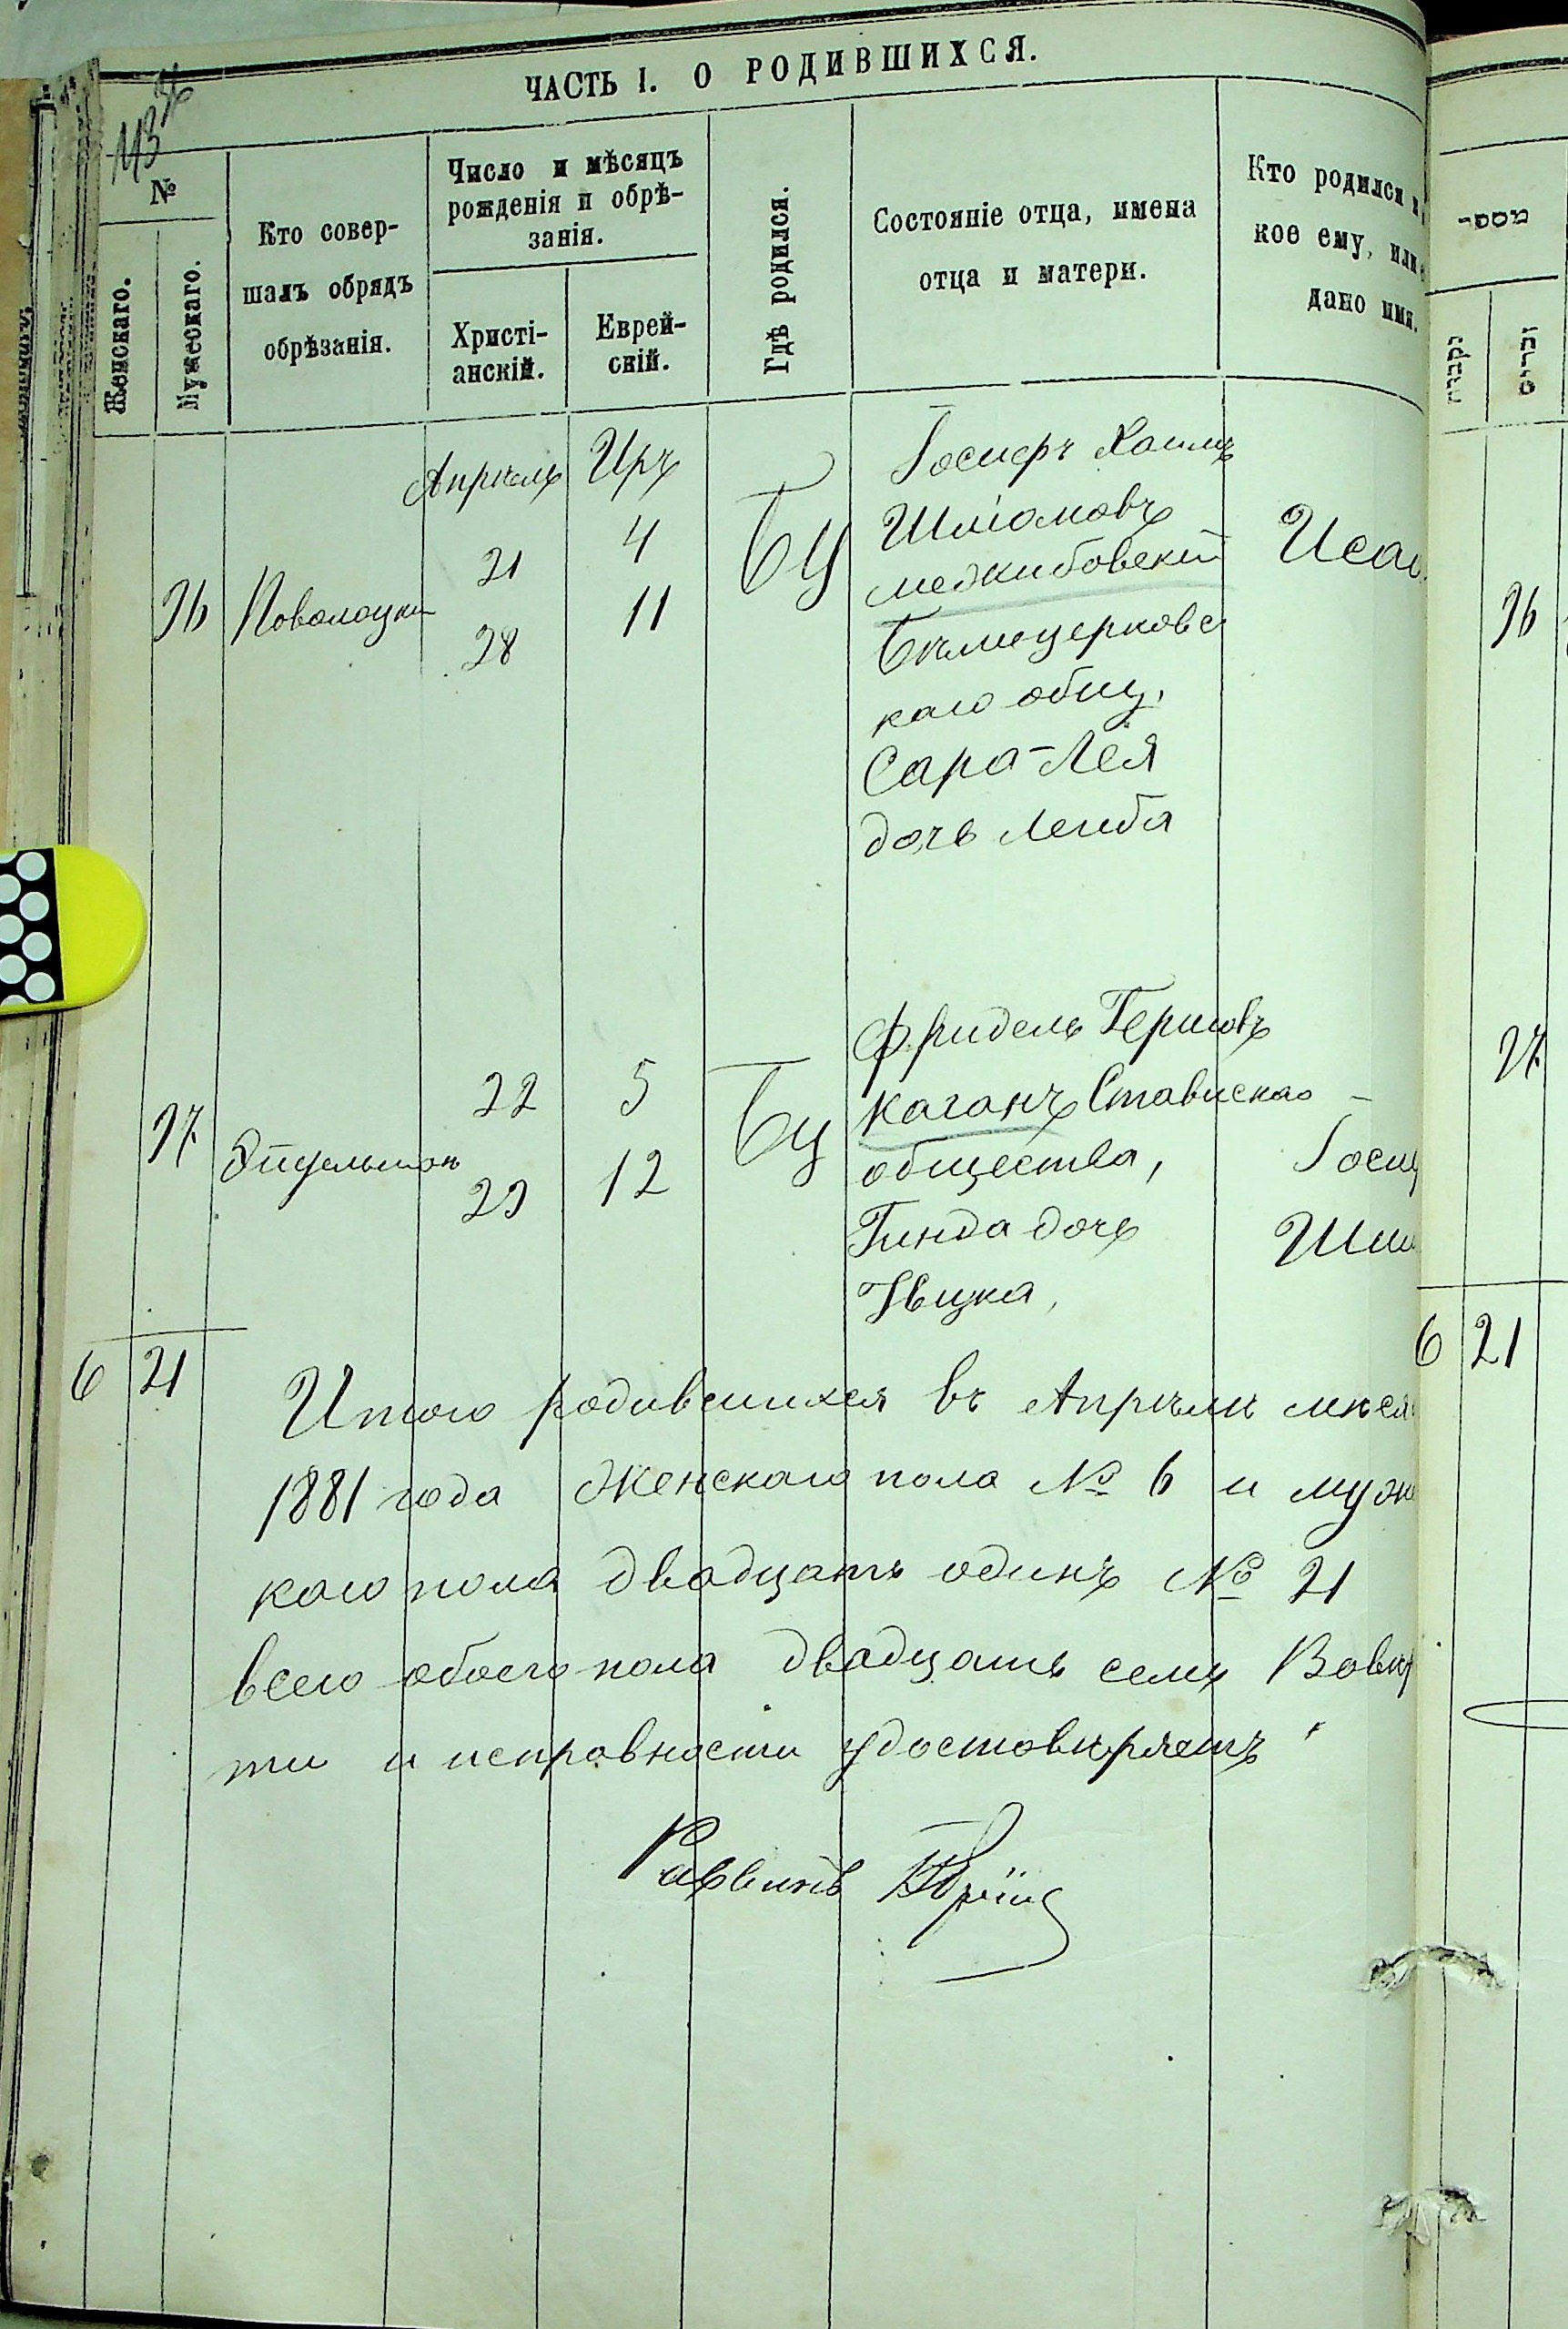 ЧАСТЬ I. О РОДИВШИХСЯ.
113
№
Женскаго.
Мужескаго.
Кто совер-
шалъ обрядъ
обрѣзанія.
Число и мѣсяцъ
рожденія и обрѣ-
занія.
Христі-
анскій.
Еврей-
скій.
Гдѣ родился.
Состояніе отца, имена
отца и матери.
Кто родился и
кое ему, или
дано имя.
מספר
נקבות
זכרים
Апрель
Иръ
96
Поволоцки
21
28
4
11
БЦ
Іосифъ Хаимъ
Шліомовъ
меджибовскій
Бѣлицерковс
каго общ.
Сара-Лея
дочь Лейба
Иса
96
97
Эйдельман
22
29
5
12
Бц
Фридель Гершовъ
Каганъ Ставискаго
общества,
Гинда дочь
Івцка,
Іос
Шм
97
6 21
6 21
Итого родившихся въ Апрѣлѣ мѣся
1881 года Женскаго пола № 6 и муж
каго пола двадцать одинъ № 21
всего обоего пола двадцать семь Вовѣр
ти и исправности удостовѣряетъ
Раввинъ